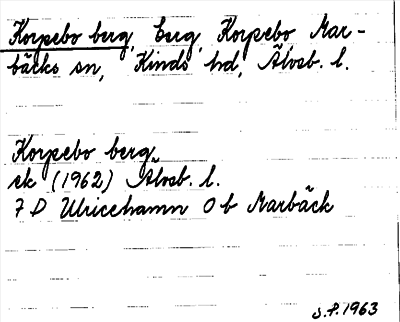 Korpebo berg, berg, Korpebo, Mar-
bäcks sn, Kinds hd, Älvsb. l.
Korpebo berg
ek (1962) Älvsb. l.
7 D Ulricehamn 0 b Marbäck
S.P. 1963